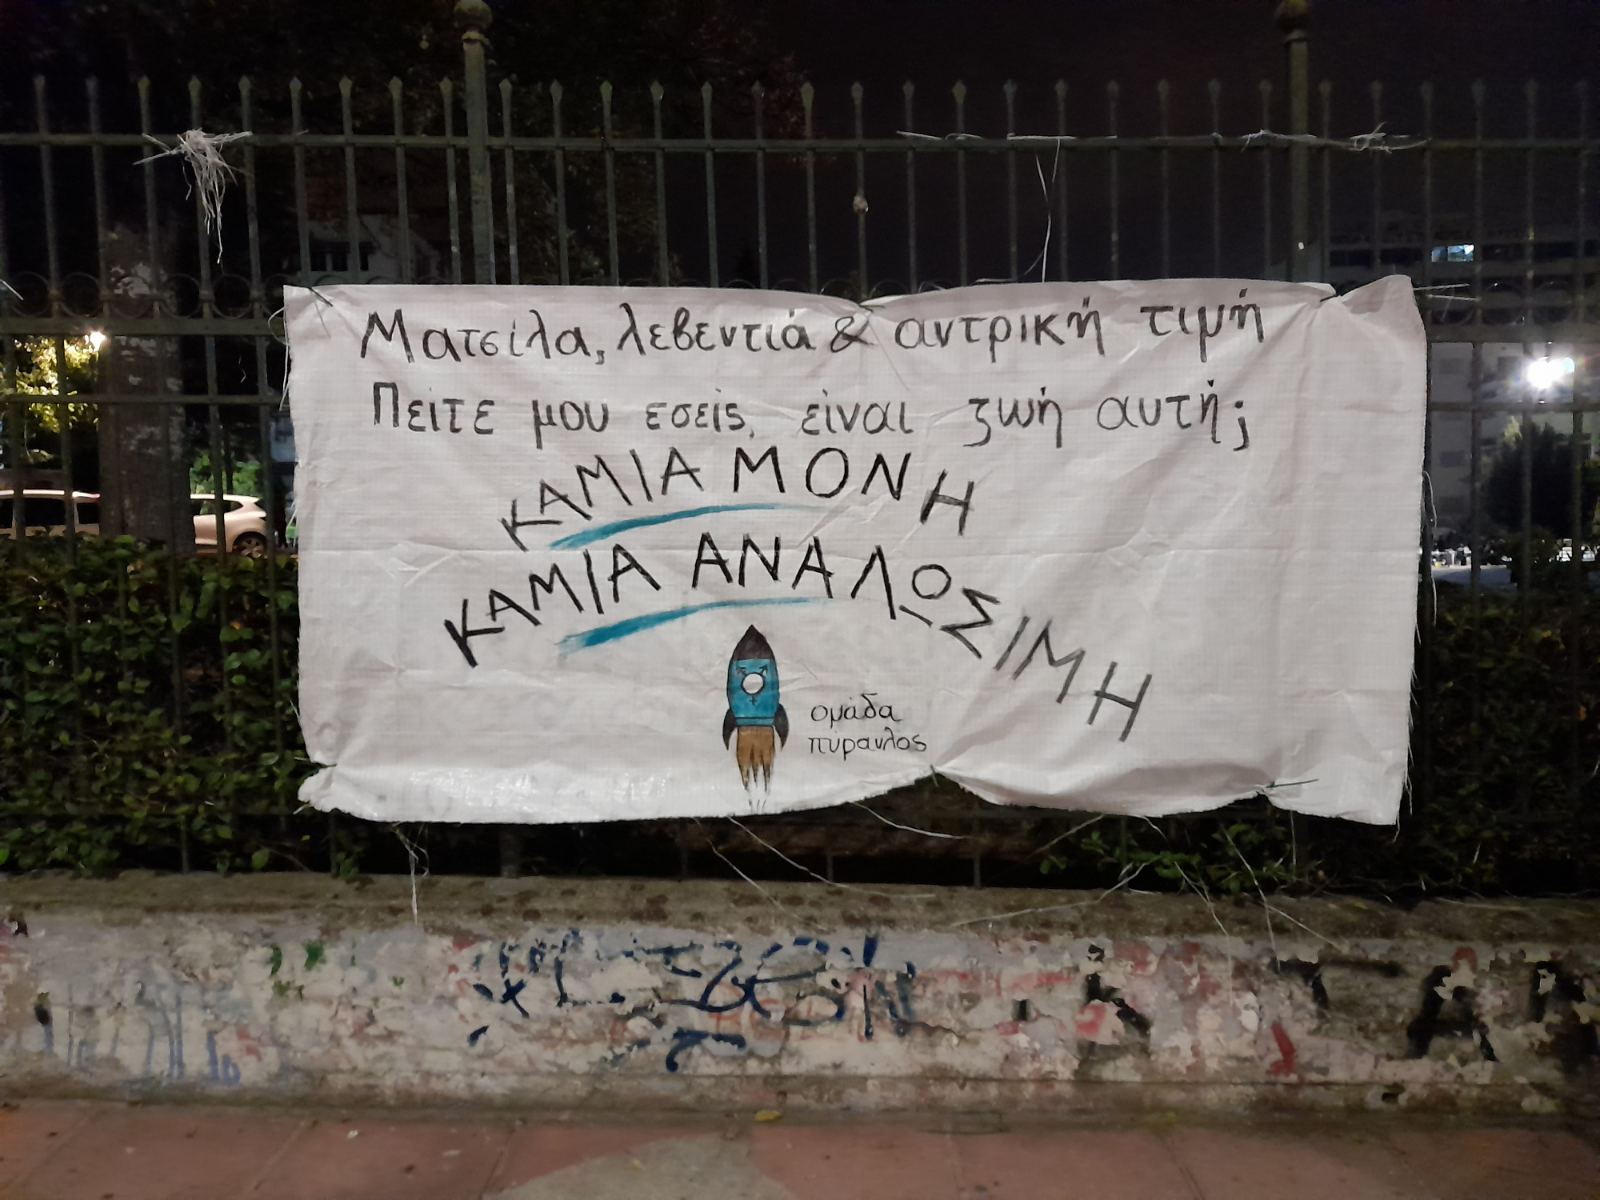 Ματσίλα, λεβεντιά & αντρική τιμή
Πείτε μου εσείς, είναι ζωή αυτή;
ΚΑΜΙΑ ΜΟΝΗ
ΚΑΜΙΑ ΑΝΑΛΩΣΙΜΗ
ομάδα
πύραυλος